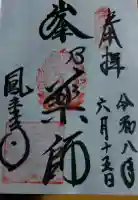 奉拝
令和八年
六月十五日
峯乃薬師
鳳来寺